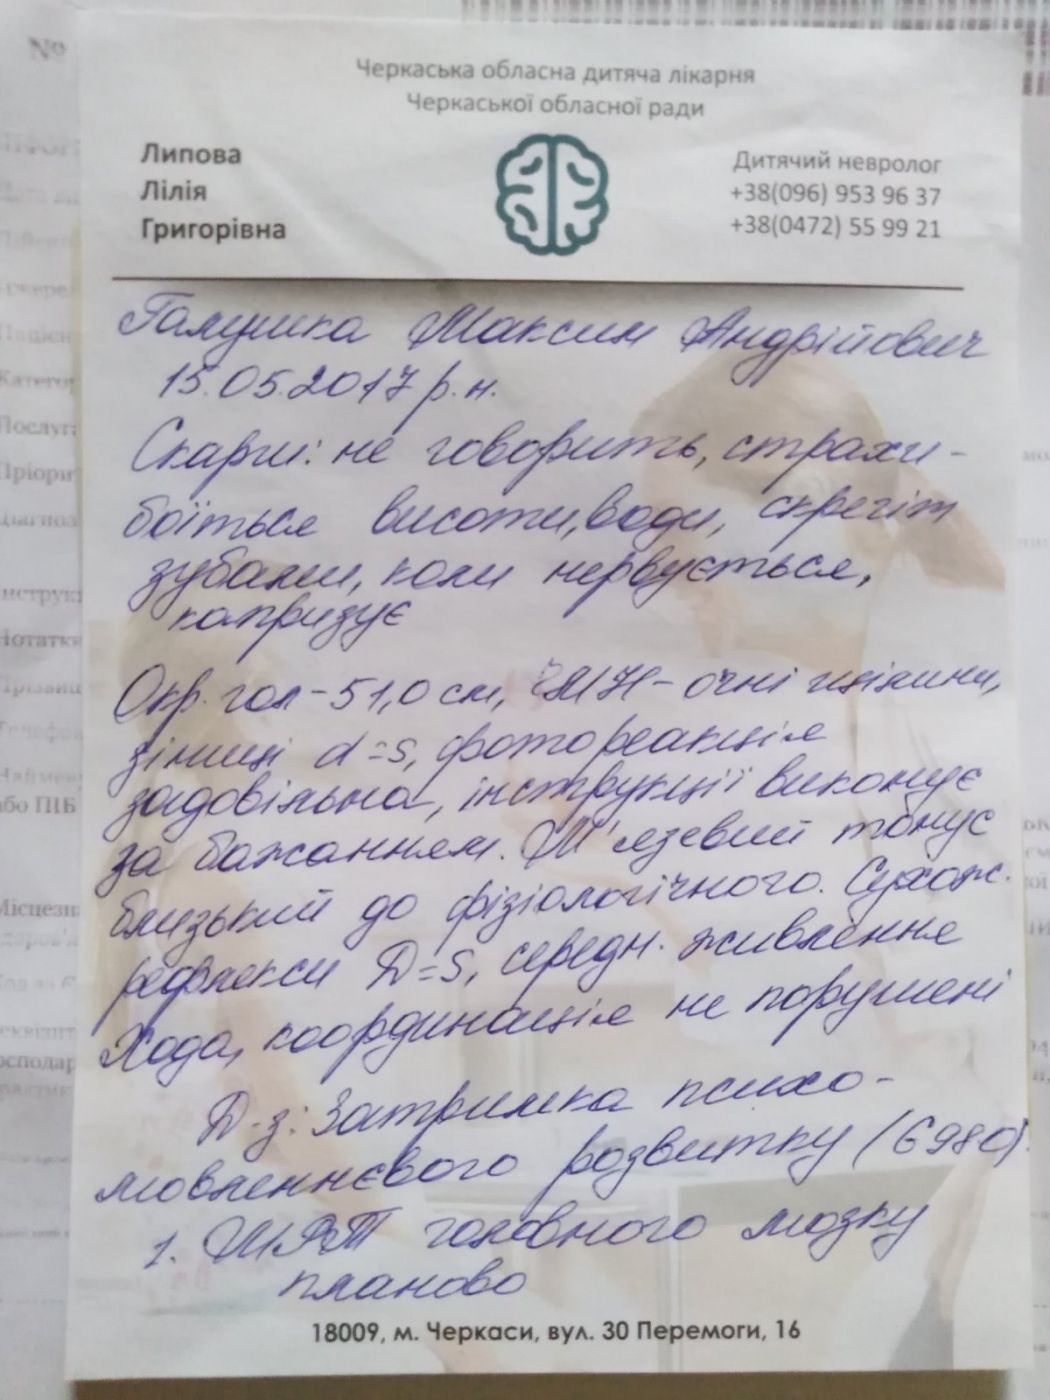 Черкаська обласна дитяча лікарня
Черкаської обласної ради
Липова
Лілія
Григорівна
Дитячий невролог
+38(096) 953 96 37
+38(0472) 55 99 21
Галушка Максим Андрійович
15.05.2017 р.н.
Скарги: не говорить, страхи -
боїться висоти, води, скрегіт
зубами, коли нервується,
капризує
Окр. гол - 51,0 см, ЧМН - очні щілини,
зіниці d=s, фотореакція
задовільна, інструкції виконує
за бажанням. М'язевий тонус
близький до фізіологічного. Сухож.
рефлекси D=S, середн. живлення
Хода, координація не порушені
Д-з: Затримка психо-
мовленнєвого розвитку (G980).
1. МРТ головного мозку
планово
18009, м. Черкаси, вул. 30 Перемоги, 16